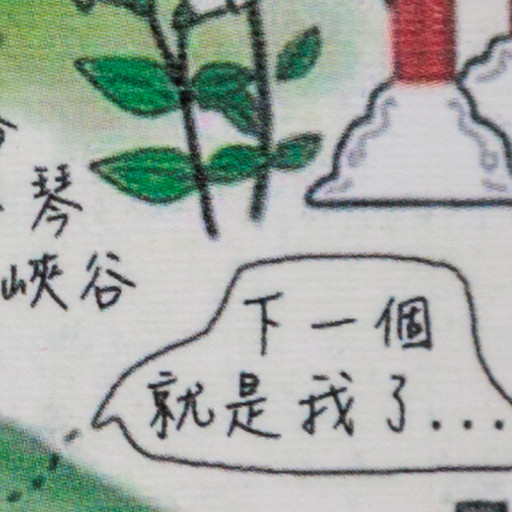 琴
峽谷
下一個
就是我了...